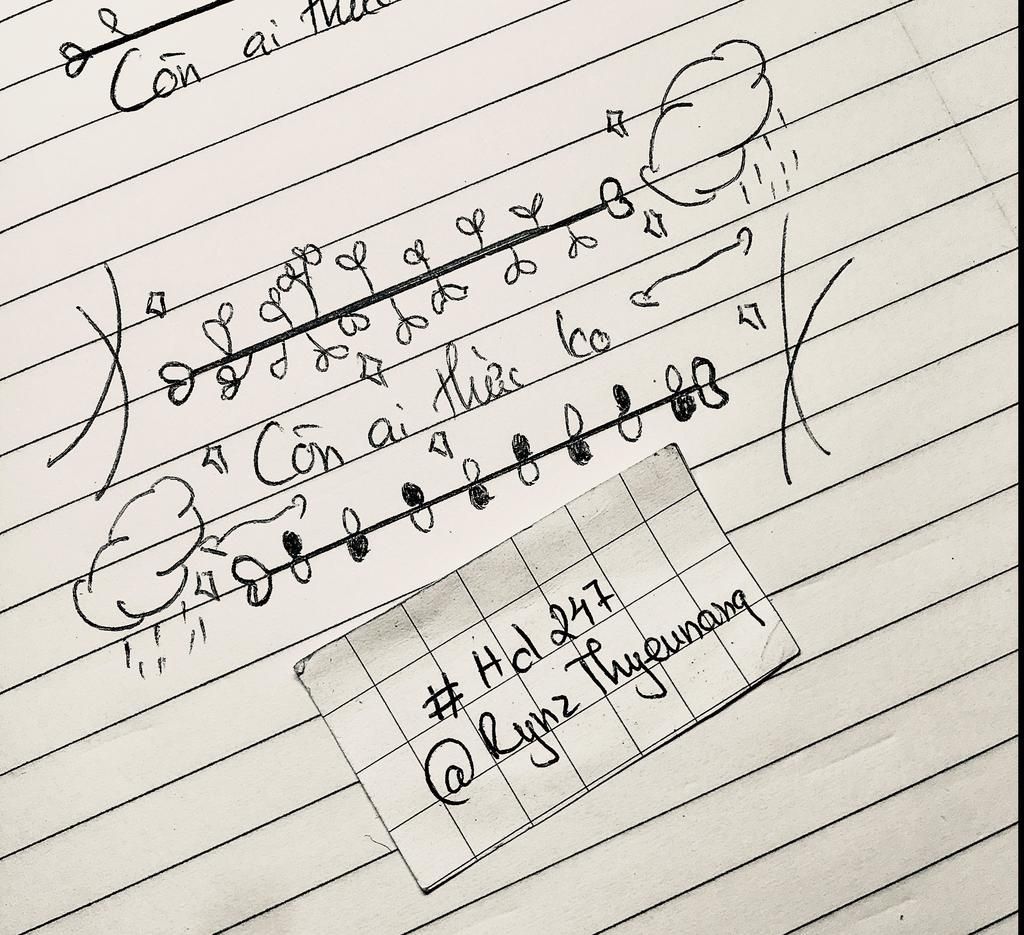 Còn ai thức
Còn ai thức ko
# Hd 247
@Rynz Thyeunang